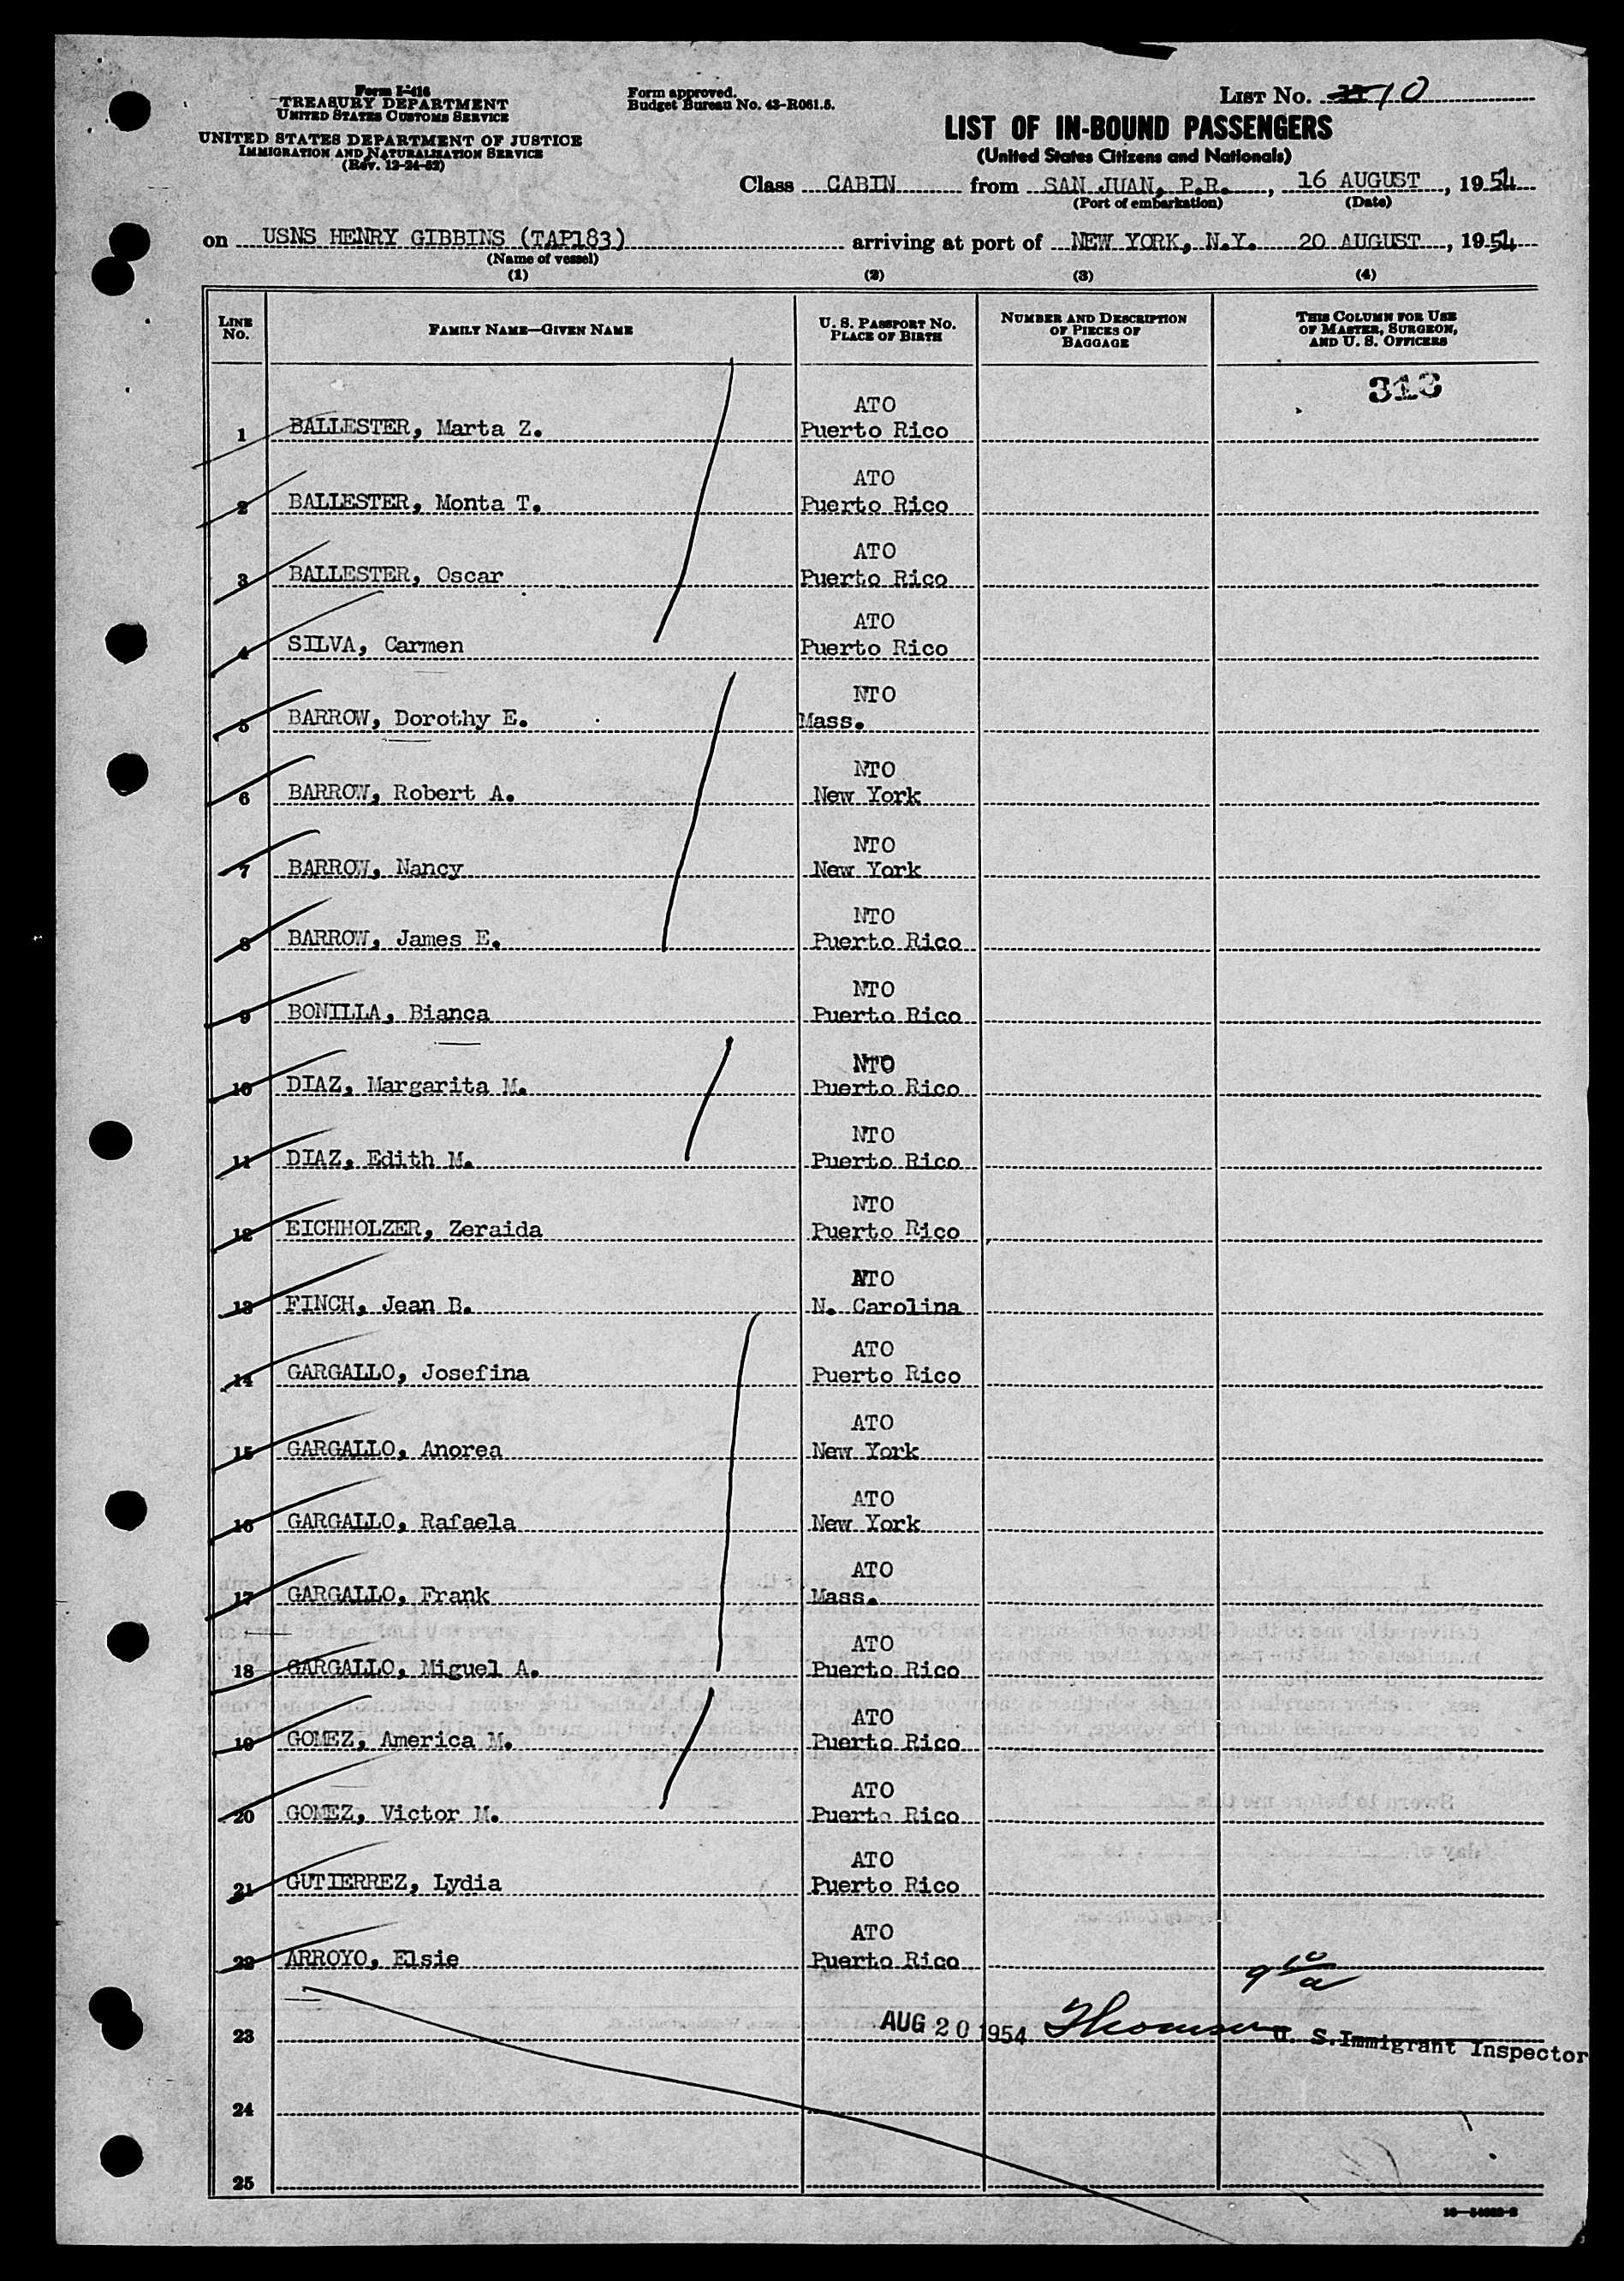 Form I-416
TREASURY DEPARTMENT
UNITED STATES CUSTOMS SERVICE
UNITED STATES DEPARTMENT OF JUSTICE
IMMIGRATION AND NATURALIZATION SERVICE
(Rev. 12-24-52)
Form approved.
Budget Bureau No. 43-R061.5.
LIST No. 10
LIST OF IN-BOUND PASSENGERS
(United States Citizens and Nationals)
Class CABIN from SAN JUAN, P.R., 16 AUGUST, 1954
(Port of embarkation) (Date)
on USNS HENRY GIBBINS (TAP183) arriving at port of NEW YORK, N.Y. 20 AUGUST, 1954
(Name of vessel)
(1) (2) (3) (4)
LINE No. FAMILY NAME—GIVEN NAME U. S. PASSPORT No. PLACE OF BIRTH NUMBER AND DESCRIPTION OF PIECES OF BAGGAGE THIS COLUMN FOR USE OF MASTER, SURGEON, AND U. S. OFFICERS
313
ATO
1 BALLESTER, Marta Z. Puerto Rico
ATO
2 BALLESTER, Monta T. Puerto Rico
ATO
3 BALLESTER, Oscar Puerto Rico
ATO
4 SILVA, Carmen Puerto Rico
NTO
5 BARROW, Dorothy E. Mass.
NTO
6 BARROW, Robert A. New York
NTO
7 BARROW, Nancy New York
NTO
8 BARROW, James E. Puerto Rico
NTO
9 BONILLA, Bianca Puerto Rico
NTO
10 DIAZ, Margarita M. Puerto Rico
NTO
11 DIAZ, Edith M. Puerto Rico
NTO
12 EICHHOLZER, Zeraida Puerto Rico
ATO
13 FINCH, Jean B. N. Carolina
ATO
14 GARGALLO, Josefina Puerto Rico
ATO
15 GARGALLO, Anorea New York
ATO
16 GARGALLO, Rafaela New York
ATO
17 GARGALLO, Frank Mass.
ATO
18 GARGALLO, Miguel A. Puerto Rico
ATO
19 GOMEZ, America M. Puerto Rico
ATO
20 GOMEZ, Victor M. Puerto Rico
ATO
21 GUTIERREZ, Lydia Puerto Rico
ATO
22 ARROYO, Elsie Puerto Rico
23 AUG 20 1954 Thomsen U. S. Immigrant Inspector
24
25